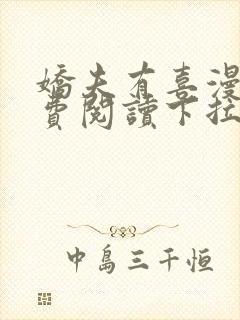 嬌夫有喜漫
費閱讀下拉
中島三千恒